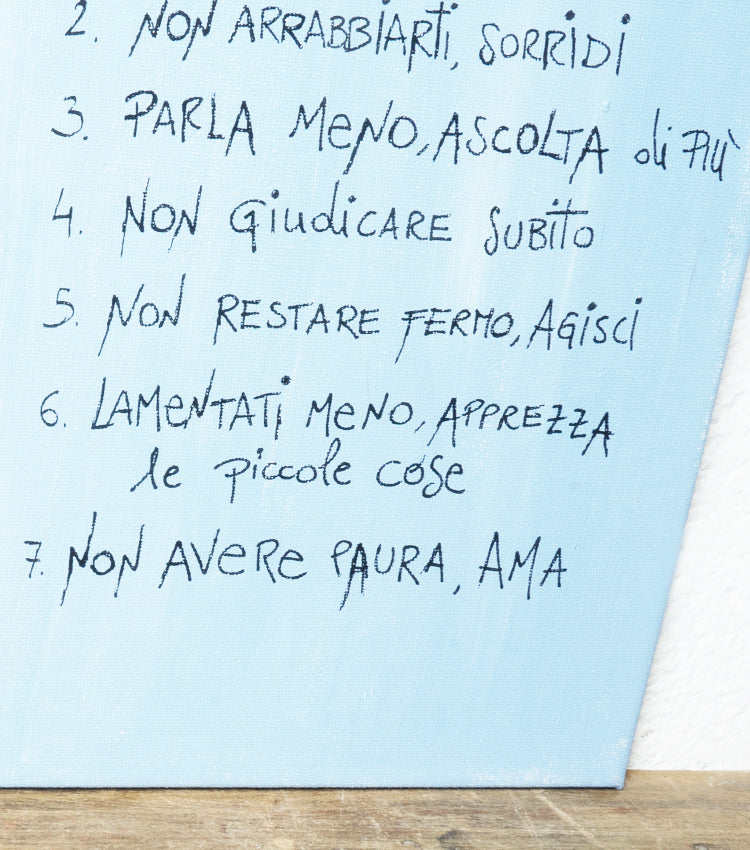 2. NON ARRABBIARTI, SORRIDI
3. PARLA MENO, ASCOLTA di PIÙ
4. NON GiudiCARE SUBITO
5. NON RESTARE FERMO, AGISCI
6. LAMENTATI MENO, APPREZZA
le piccole cose
7. NON AVERE PAURA, AMA